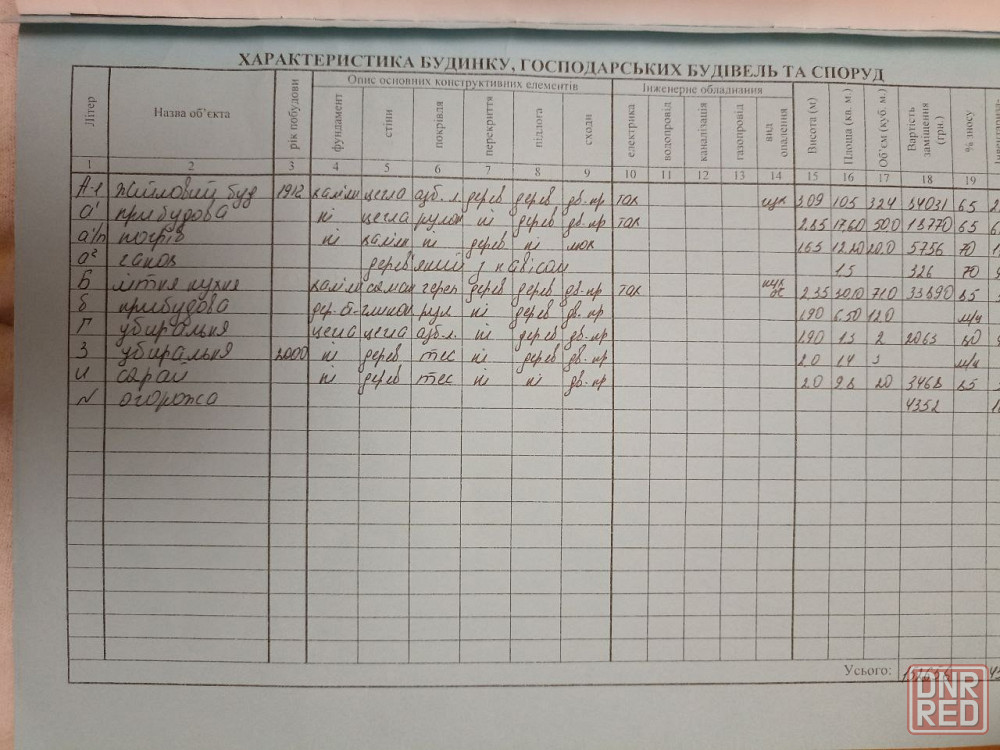 ХАРАКТЕРИСТИКА БУДИНКУ, ГОСПОДАРСЬКИХ БУДІВЕЛЬ ТА СПОРУД
Літер Назва об'єкта рік побудови Опис основних конструктивних елементів Інженерне обладнання Висота (м) Площа (кв. м.) Об'єм (куб. м.) Вартість заміщення (грн.) % зносу
фундамент стіни покрівля перекриття підлога сходи електрика водопровід каналізація газопровід вид опалення
1 2 3 4 5 6 7 8 9 10 11 12 13 14 15 16 17 18 19
А-1 житловий буд 1912 камін цегла азб.л. дерев дерев дв.пр так 3.09 105 324 54031 65
а' прибудова ні цегла рулон ні дерев дв.пр так 2.85 17.60 50.0 65
а'/п погріб ні камін ні дерев ні люк 1.65 12.20 20.0 5756 70
а² ганок дерев'яний з навісом 1.5 326 70
Б літня кухня камін саман череп дерев дерев дв.пр так 2.35 30.10 71.0
б прибудова рул ні дерев дв.пр 1.90 6.50 12.0
Г убиральня цегла цегла азб.л. ні дерев дв.пр 1.90 1.3 2 2063
З убиральня 2000 ні дерев тес ні дерев дв.пр 2.0 1.4 3
И сарай ні дерев тес ні ні дв.пр 2.0 9.8 20 3468
N огорожа 4352
Усього:
DNR
RED